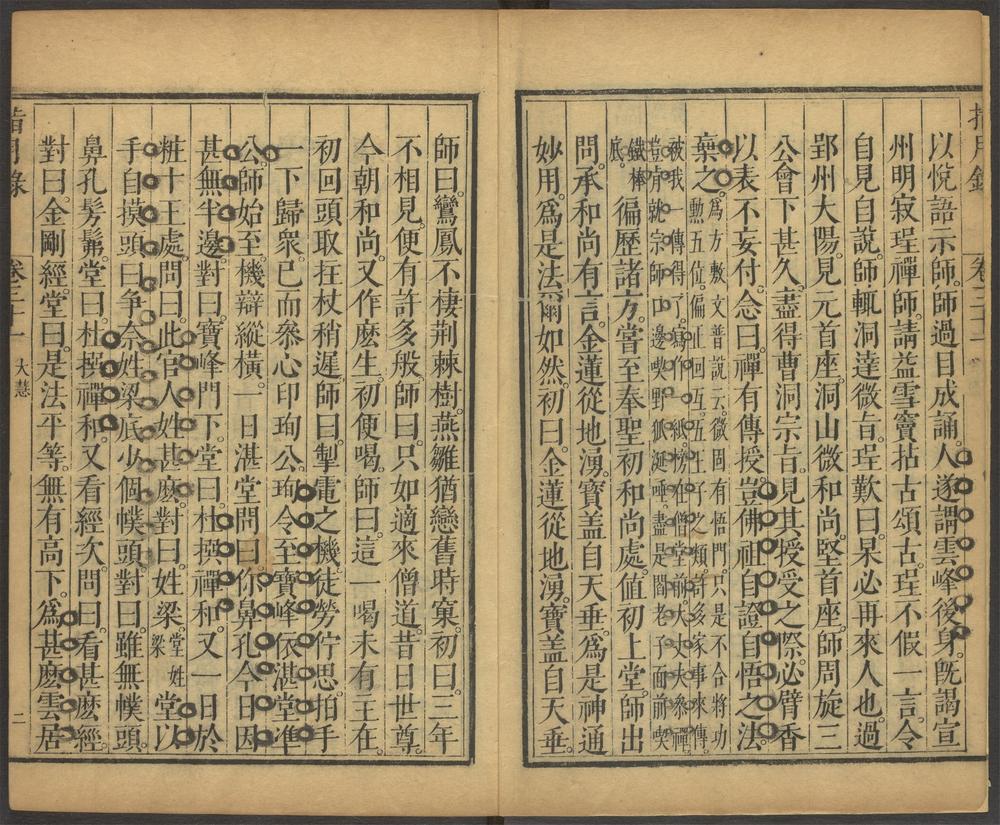 指月錄 卷三十一
以悅語示師。師過目成誦。人遂謂雲峰後身。旣謁宣
州明寂珵禪師。請益雪竇拈古頌古。珵不假一言。令
自見自說。師輒洞達微旨。珵歎曰。杲必再來人也。過
郢州大陽。見元首座。洞山微和尚。堅首座。師周旋三
公會下甚久。盡得曹洞宗旨。見其授受之際。必臂香
以表不妄付。念曰。禪有傳授。豈佛祖自證自悟之法。
棄之。爲方敷文普說云。微固有悟門。只是不合將功
勲五位。偏正回互。五王子之類。許多家事來傳。
被我一傳得了。寫作一紙。榜在僧堂前。大丈夫參禪。
豈肯就宗師口邊喫野狐涎唾。盡是閻老子面前喫
鐵棒底。徧歷諸方。嘗至奉聖初和尚處。值初上堂。師出
問。承和尚有言。金蓮從地湧。寶盖自天垂。爲是神通
妙用。爲是法爾如然。初曰。金蓮從地湧。寶盖自天垂。
師曰。鸞鳳不棲荆棘樹。燕雛猶戀舊時窠。初曰。三年
不相見。便有許多般。師曰。只如適來僧道。昔日世尊。
今朝和尚。又作麽生。初便喝。師曰。這一喝未有主在。
初回頭取拄杖稍遲。師曰。掣電之機。徒勞佇思。拍手
一下歸衆。已而叅心印珣公。珣令至寶峰依湛堂準
公。師始至。機辯縱橫。一日湛堂問曰。你鼻孔今日因
甚無半邊。對曰。寶峰門下。堂曰。杜撰禪和。又一日於
粧十王處。問曰。此官人姓甚麽。對曰。姓梁。堂姓梁 堂以
手自摸頭曰。爭奈姓梁底少個幞頭。對曰。雖無幞頭。
鼻孔髣髴。堂曰。杜撰禪和。又看經次。問曰。看甚麽經。
對曰。金剛經。堂曰。是法平等。無有高下。爲甚麽雲居
指月錄 卷三十一 大慧 二